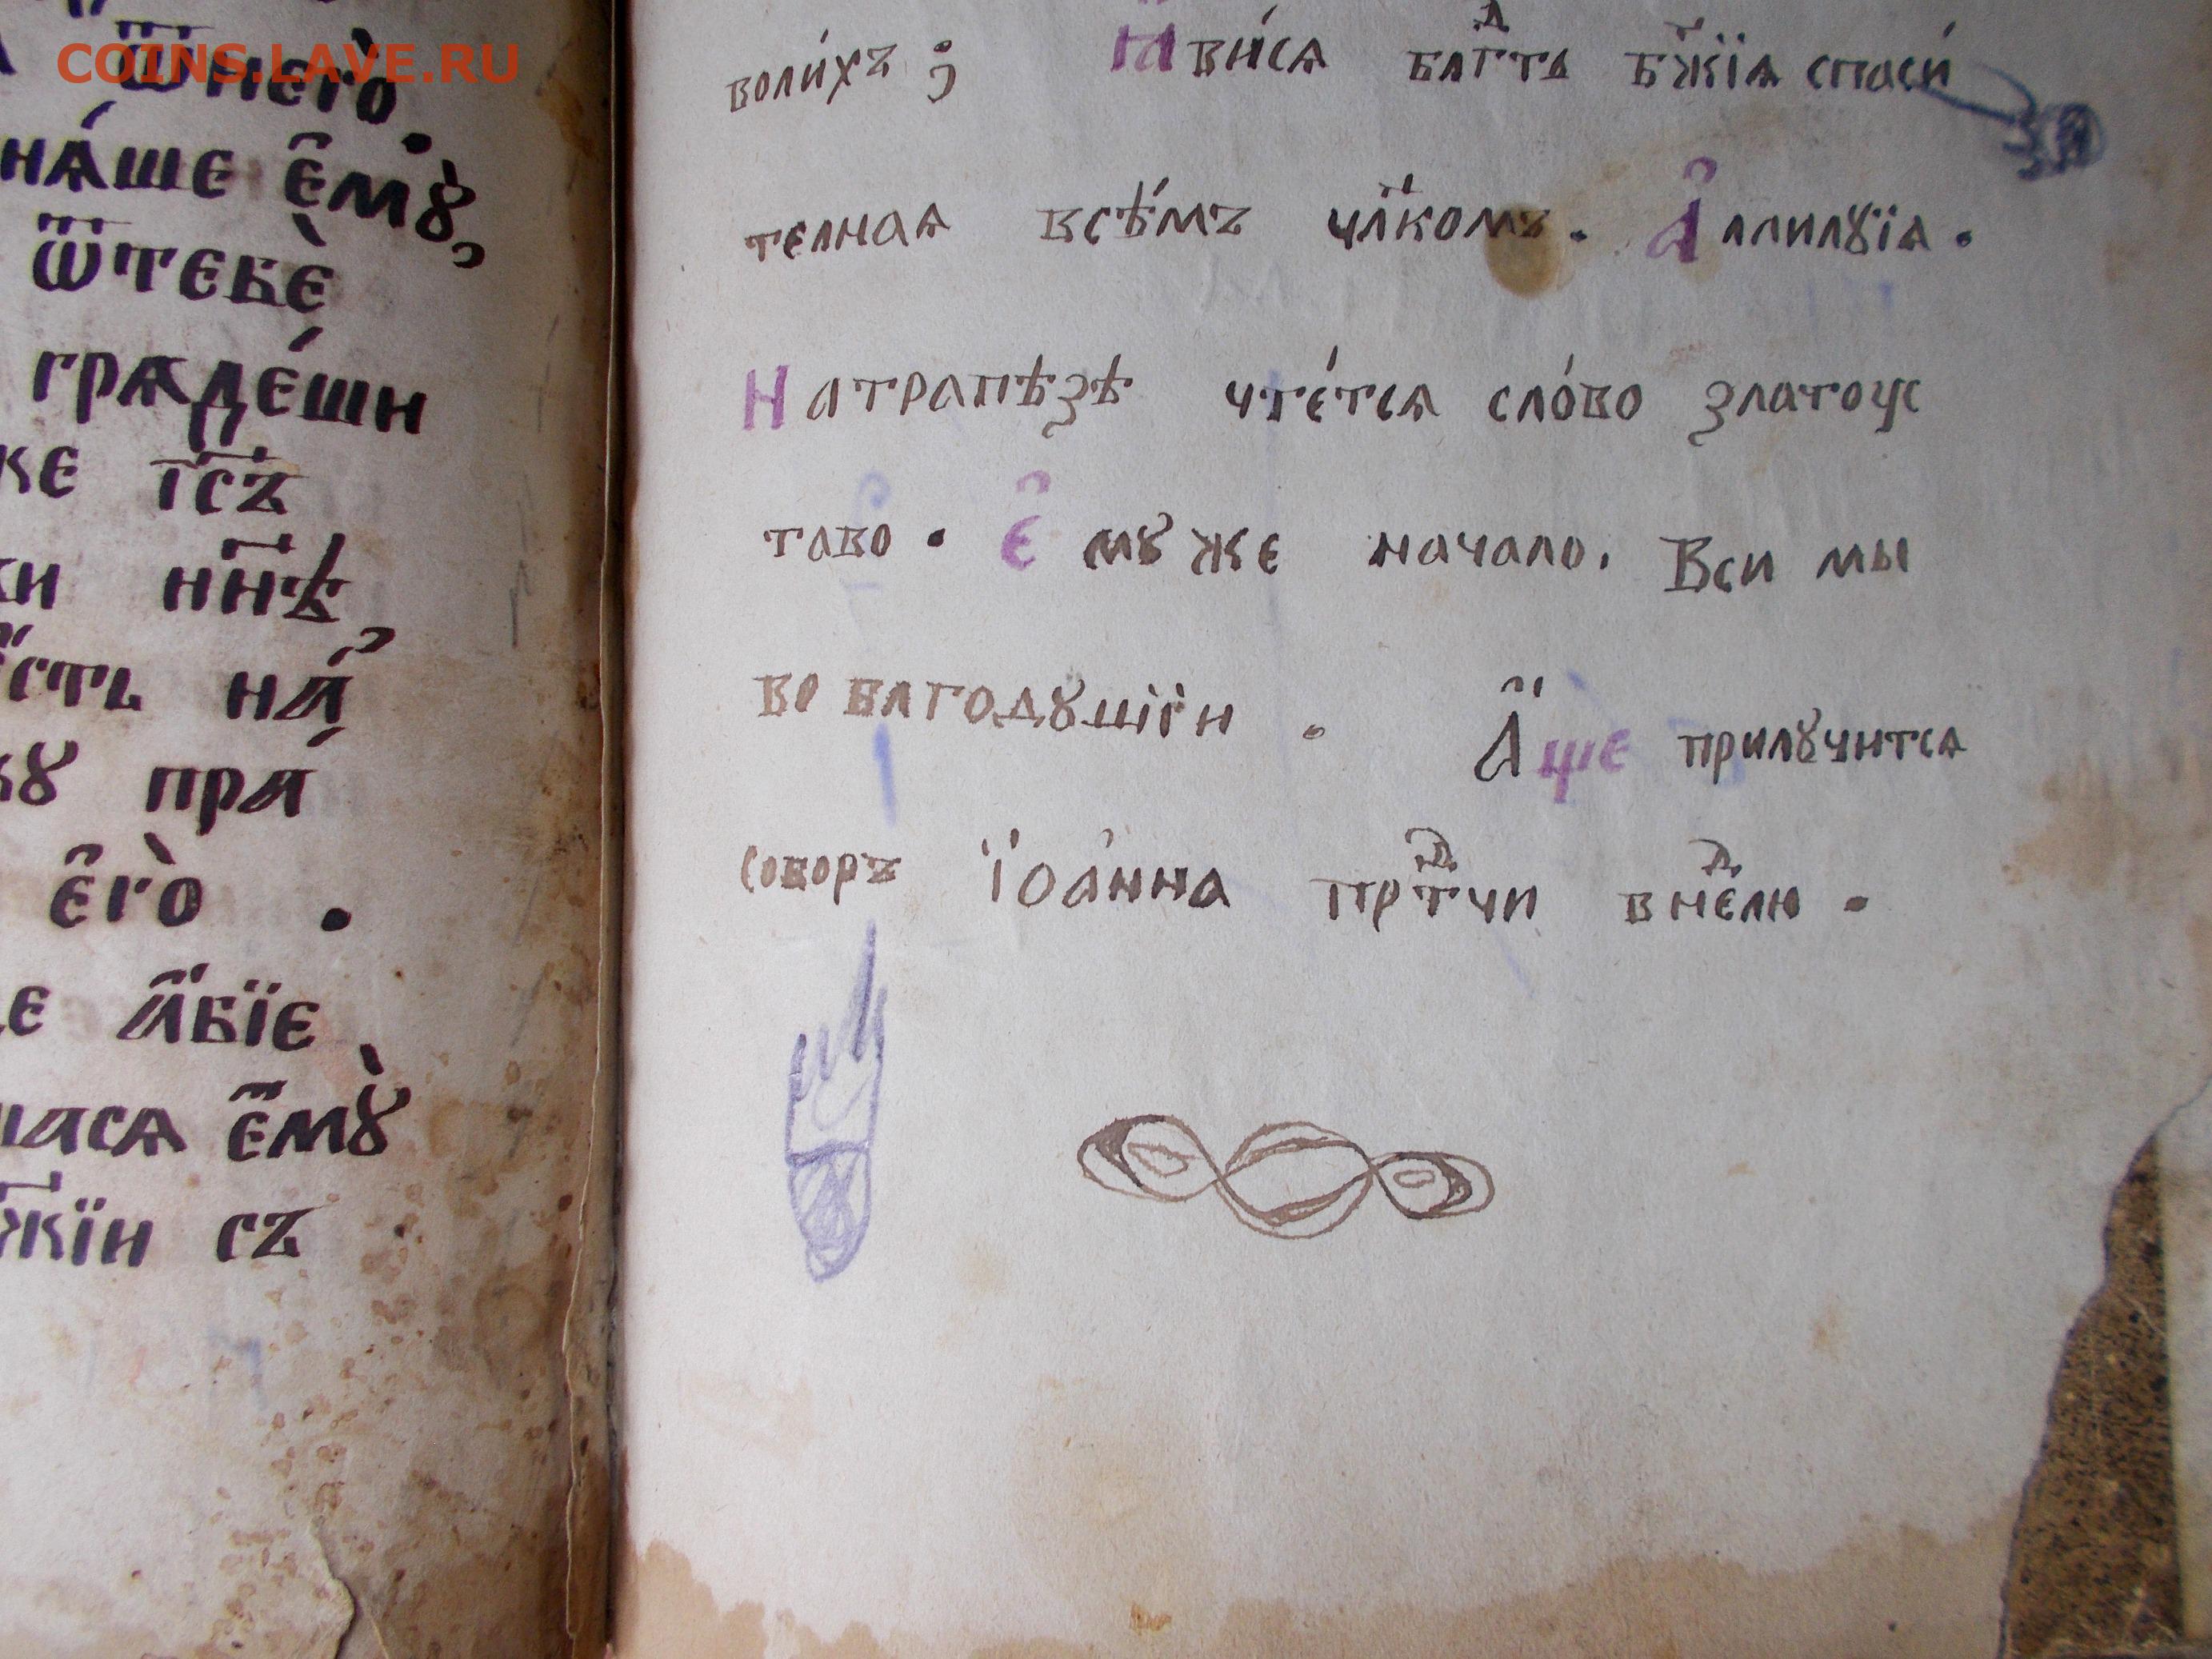 COINS.LAVE.RU
ѿнегѡ̀.
на́ше є҆мꙋ̀,
ѿтебє̀
грѧде́ши
же і҃съ
нн҃ѣ,
є҆сть на́
прѧ́
є҆го̀ .
а҆́бїе
шасѧ є҆мꙋ̀
жїи съ
воли́хъ ; Ꙗ҆ви́сѧ блгⷣть бж҃їѧ спаси́
телнаѧ всѣ́мъ чл҃комъ. А҆ллилꙋїѧ.
Натрапѣзѣ чте́тсѧ сло́во златоус
таво. Є҆мꙋже начало. Вси мы
во благодꙋшїи . А҆́ще прилꙋчитсѧ
соборъ Їѡа́нна прⷣтчи внⷣелю .